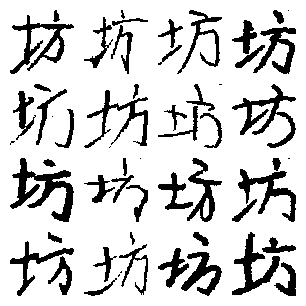 坊坊坊坊
坊坊坊坊
坊坊坊坊
坊坊坊坊